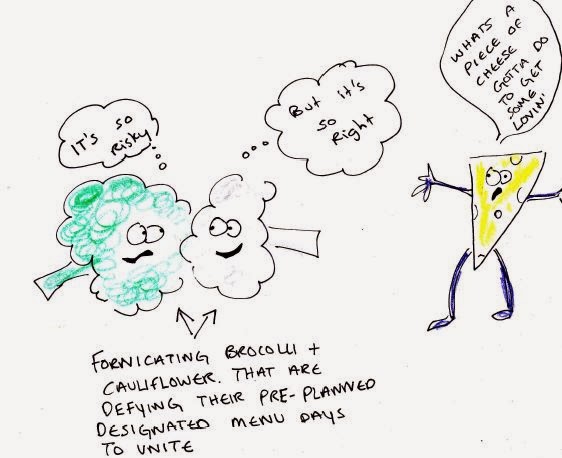 IT'S SO
RISKY
But it's
so
Right
WHATS A
PIECE OF
CHEESE
GOTTA DO
TO GET
SOME
LOVIN'
FORNICATING BROCOLLI +
CAULIFLOWER. THAT ARE
DEFYING THEIR PRE-PLANNED
DESIGNATED MENU DAYS
TO UNITE